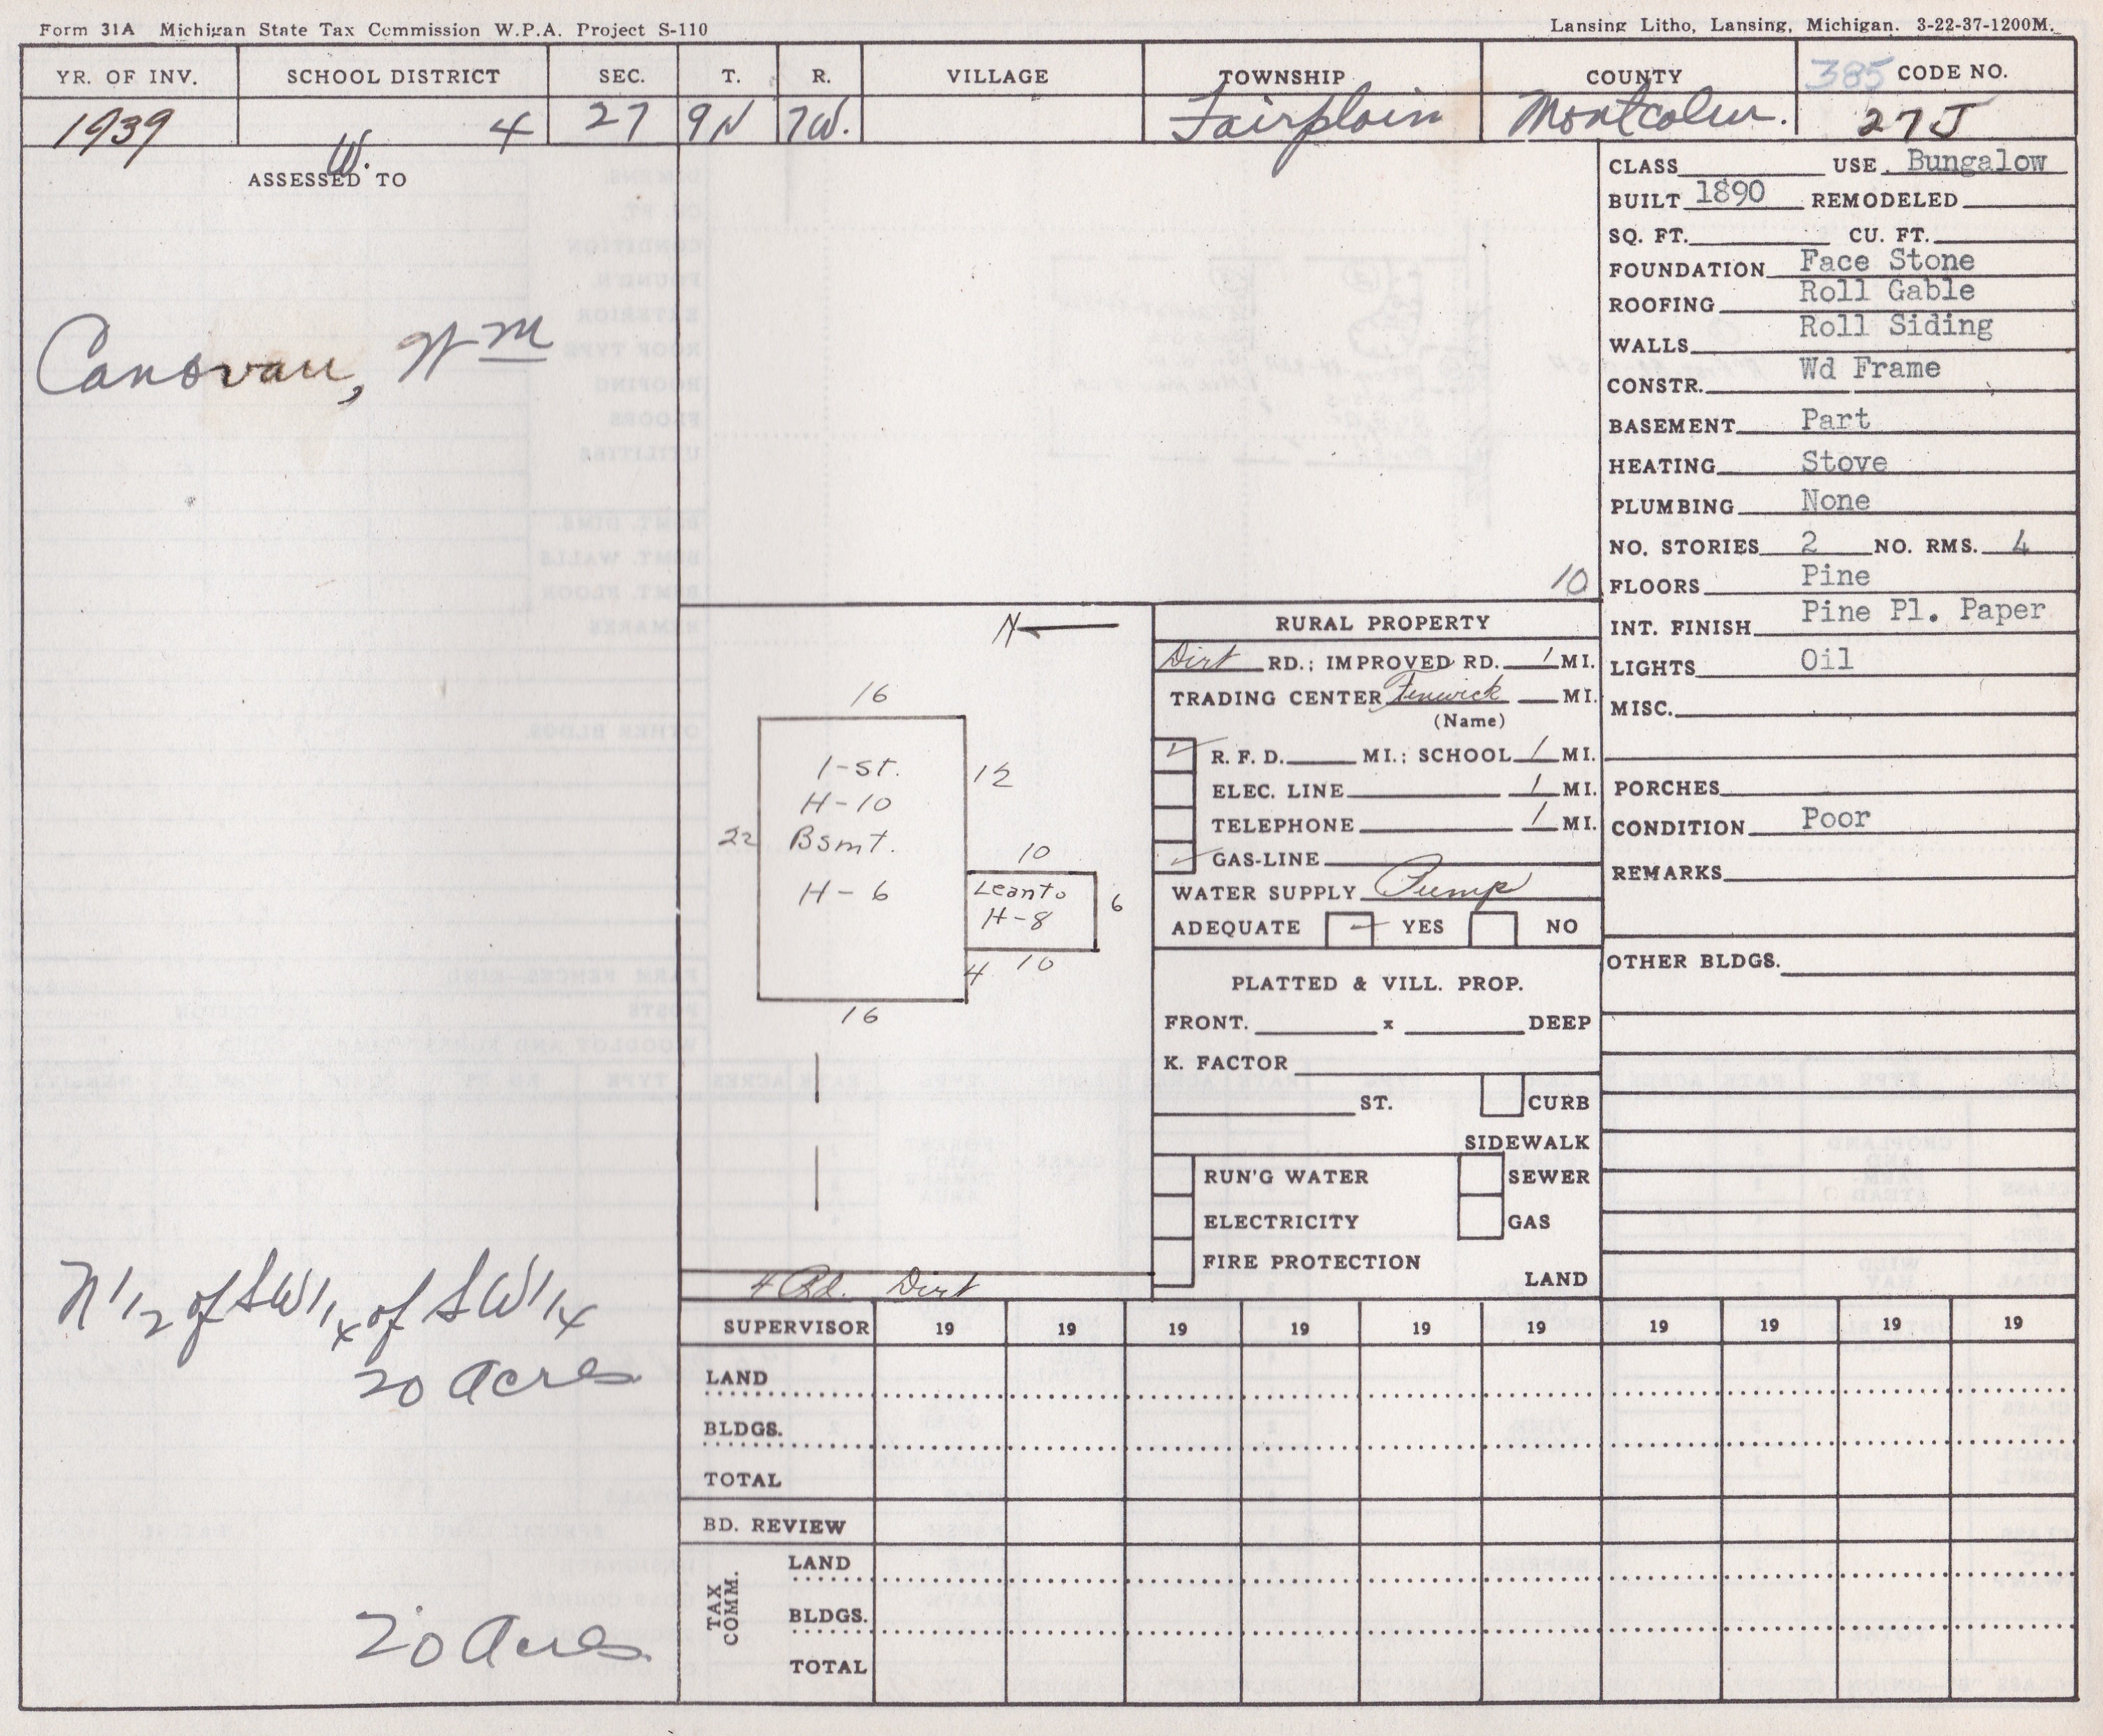 Form 31A Michigan State Tax Commission W.P.A. Project S-110
Lansing Litho, Lansing, Michigan. 3-22-37-1200M.
YR. OF INV. SCHOOL DISTRICT SEC. T. R. VILLAGE TOWNSHIP COUNTY 385 CODE NO.
1939 W. 4 27 9N 7W. Fairplain Montcalm. 27J
ASSESSED TO
Canovan, Wm
N 1/2 of SW 1/4 of SW 1/4
20 Acres
20 Acres
10
CLASS USE Bungalow
BUILT 1890 REMODELED
SQ. FT. CU. FT.
FOUNDATION Face Stone
ROOFING Roll Gable
WALLS Roll Siding
CONSTR. Wd Frame
BASEMENT Part
HEATING Stove
PLUMBING None
NO. STORIES 2 NO. RMS. 4
FLOORS Pine
INT. FINISH Pine Pl. Paper
LIGHTS Oil
MISC.
PORCHES
CONDITION Poor
REMARKS
OTHER BLDGS.
N
16
1-st.
H-10
12
22
Bsmt.
H-6
10
Leanto
H-8
6
4 10
16
4 Rd. Dirt
RURAL PROPERTY
Dirt RD.; IMPROVED RD. 1 MI.
TRADING CENTER Fenwick MI.
(Name)
R. F. D. MI.; SCHOOL 1 MI.
ELEC. LINE 1 MI.
TELEPHONE 1 MI.
GAS-LINE
WATER SUPPLY Pump
ADEQUATE YES NO
PLATTED & VILL. PROP.
FRONT. x DEEP
K. FACTOR
ST. CURB
SIDEWALK
RUN'G WATER SEWER
ELECTRICITY GAS
FIRE PROTECTION
LAND
SUPERVISOR 19 19 19 19 19 19 19 19 19 19
LAND
BLDGS.
TOTAL
BD. REVIEW
TAX COMM.
LAND
BLDGS.
TOTAL